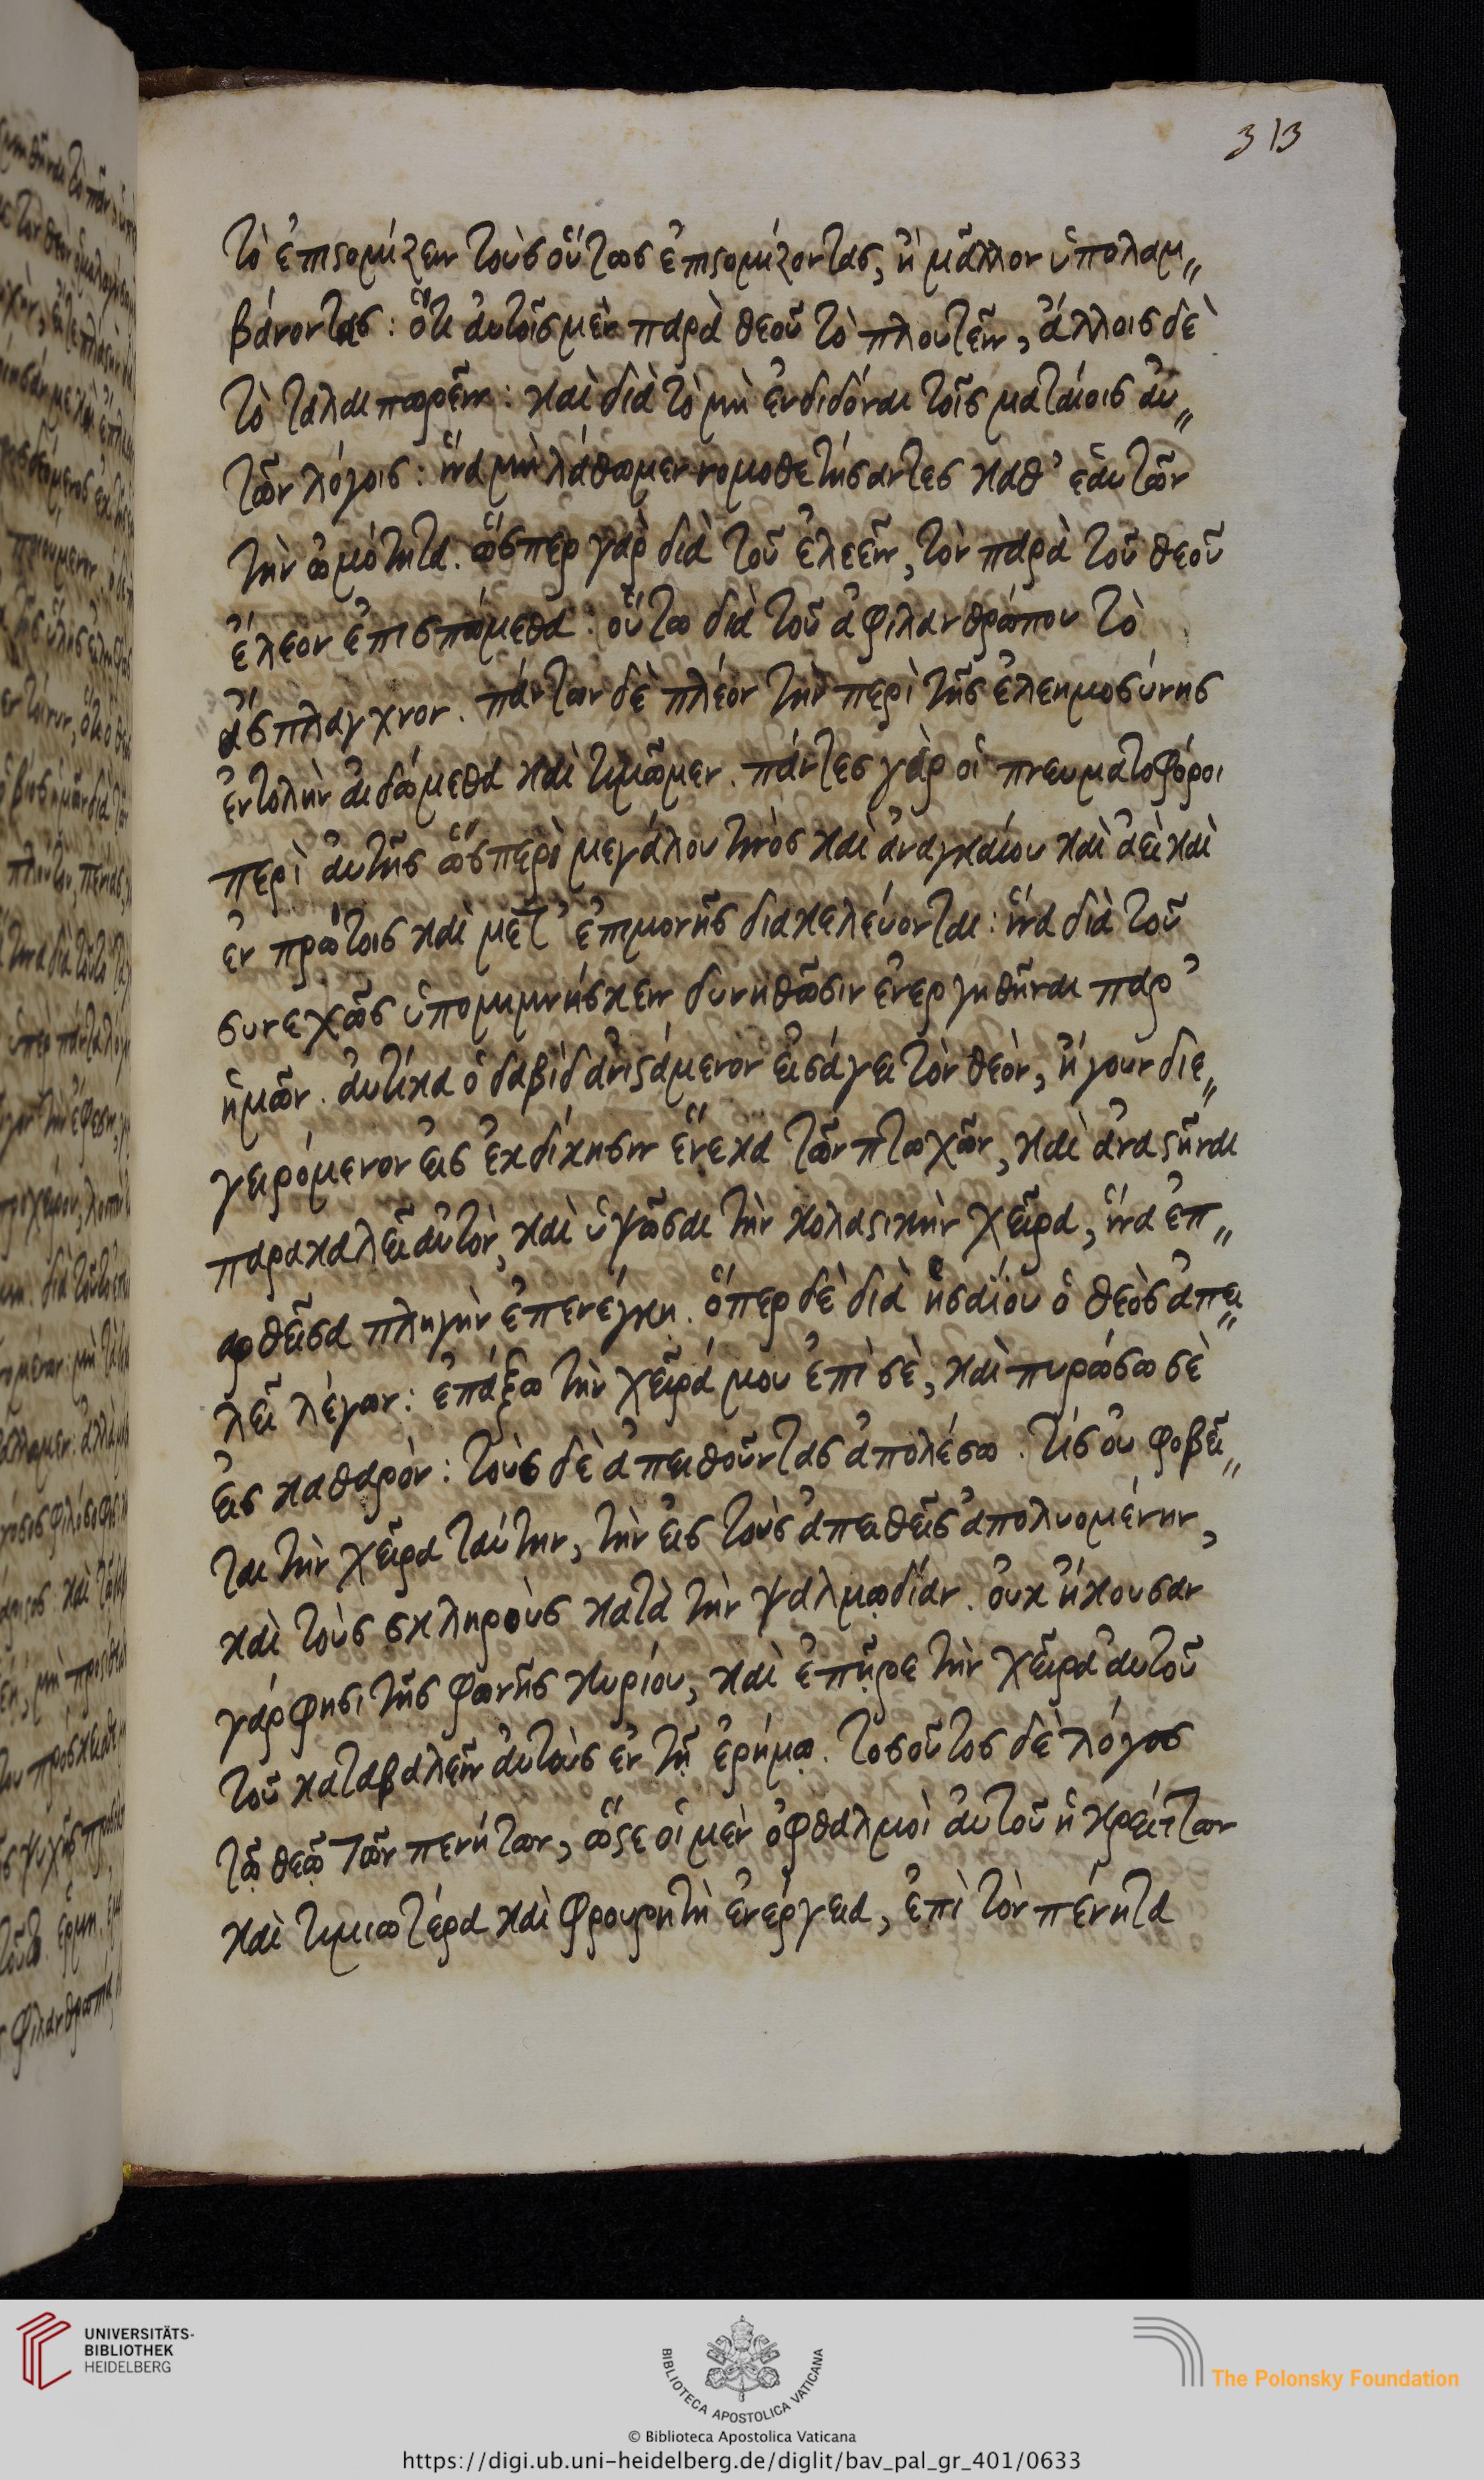 313
τὸ ἐπιστομίζειν τοὺς οὕτως ἐπιστομίζοντας, ἢ μᾶλλον ὑπολαμ„
βάνοντας: ὅτι αὐτοῖς μὲν παρὰ θεοῦ τὸ πλουτεῖν, ἄλλοις δὲ
τὸ ταλαιπωρεῖν: καὶ διὰ τὸ μὴ ἐνδιδόναι τοῖς ματαίοις αὐ„
τῶν λόγοις: ἵνα μὴ λάθωμεν νομοθετήσαντες καθ' ἑαυτῶν
τὴν ὠμότητα. ὥσπερ γὰρ διὰ τοῦ ἐλεεῖν, τὸν παρὰ τοῦ θεοῦ
ἔλεον ἐπισπώμεθα: οὕτω διὰ τοῦ ἀφιλανθρώπου τὸ
ἄσπλαγχνον. πάντων δὲ πλέον τὴν περὶ τῆς ἐλεημοσύνης
ἐντολὴν αἰδώμεθα καὶ τιμῶμεν. πάντες γὰρ οἱ πνευματοφόροι
περὶ αὐτῆς ὡς περὶ μεγάλου τινὸς καὶ ἀναγκαίου καὶ ἀεὶ καὶ
ἐν πρώτοις καὶ μετ' ἐπιμονῆς διακελεύονται: ἵνα διὰ τοῦ
συνεχῶς ὑπομιμνήσκειν δυνηθῶσιν ἐνεργηθῆναι παρ'
ἡμῶν. αὐτίκα ὁ δαβὶδ ἀνιστάμενον εἰσάγει τὸν θεὸν, ἤγουν διε„
γειρόμενον εἰς ἐκδίκησιν ἕνεκα τῶν πτωχῶν, καὶ ἀναστῆναι
παρακαλεῖ αὐτὸν, καὶ ὑψῶσαι τὴν κολαστικὴν χεῖρα, ἵνα ἐπ„
αρθεῖσα πληγὴν ἐπενέγκῃ. ὅπερ δὲ διὰ ἡσαΐου ὁ θεὸς ἀπει„
λεῖ λέγων: ἐπάξω τὴν χεῖρά μου ἐπὶ σὲ, καὶ πυρώσω σὲ
εἰς καθαρόν: τοὺς δὲ ἀπειθοῦντας ἀπολέσω. τίς οὐ φοβεῖ„
ται τὴν χεῖρα ταύτην, τὴν εἰς τοὺς ἀπειθεῖς ἀπολυομένην,
καὶ τοὺς σκληροὺς κατὰ τὴν ψαλμῳδίαν. οὐκ ἤκουσαν
γάρ φησι τῆς φωνῆς κυρίου, καὶ ἐπῇρε τὴν χεῖρα αὐτοῦ
τοῦ καταβαλεῖν αὐτοὺς ἐν τῇ ἐρήμῳ. τοσοῦτος δὲ λόγος
τῷ θεῷ τῶν πενήτων, ὥστε οἱ μὲν ὀφθαλμοὶ αὐτοῦ ἡ κρείττων
καὶ τιμιωτέρα καὶ φρουρητὴ ἐνέργεια, ἐπὶ τὸν πένητα
UNIVERSITÄTS-
BIBLIOTHEK
HEIDELBERG
BIBLIOTECA APOSTOLICA VATICANA
The Polonsky Foundation
© Biblioteca Apostolica Vaticana
https://digi.ub.uni-heidelberg.de/diglit/bav_pal_gr_401/0633